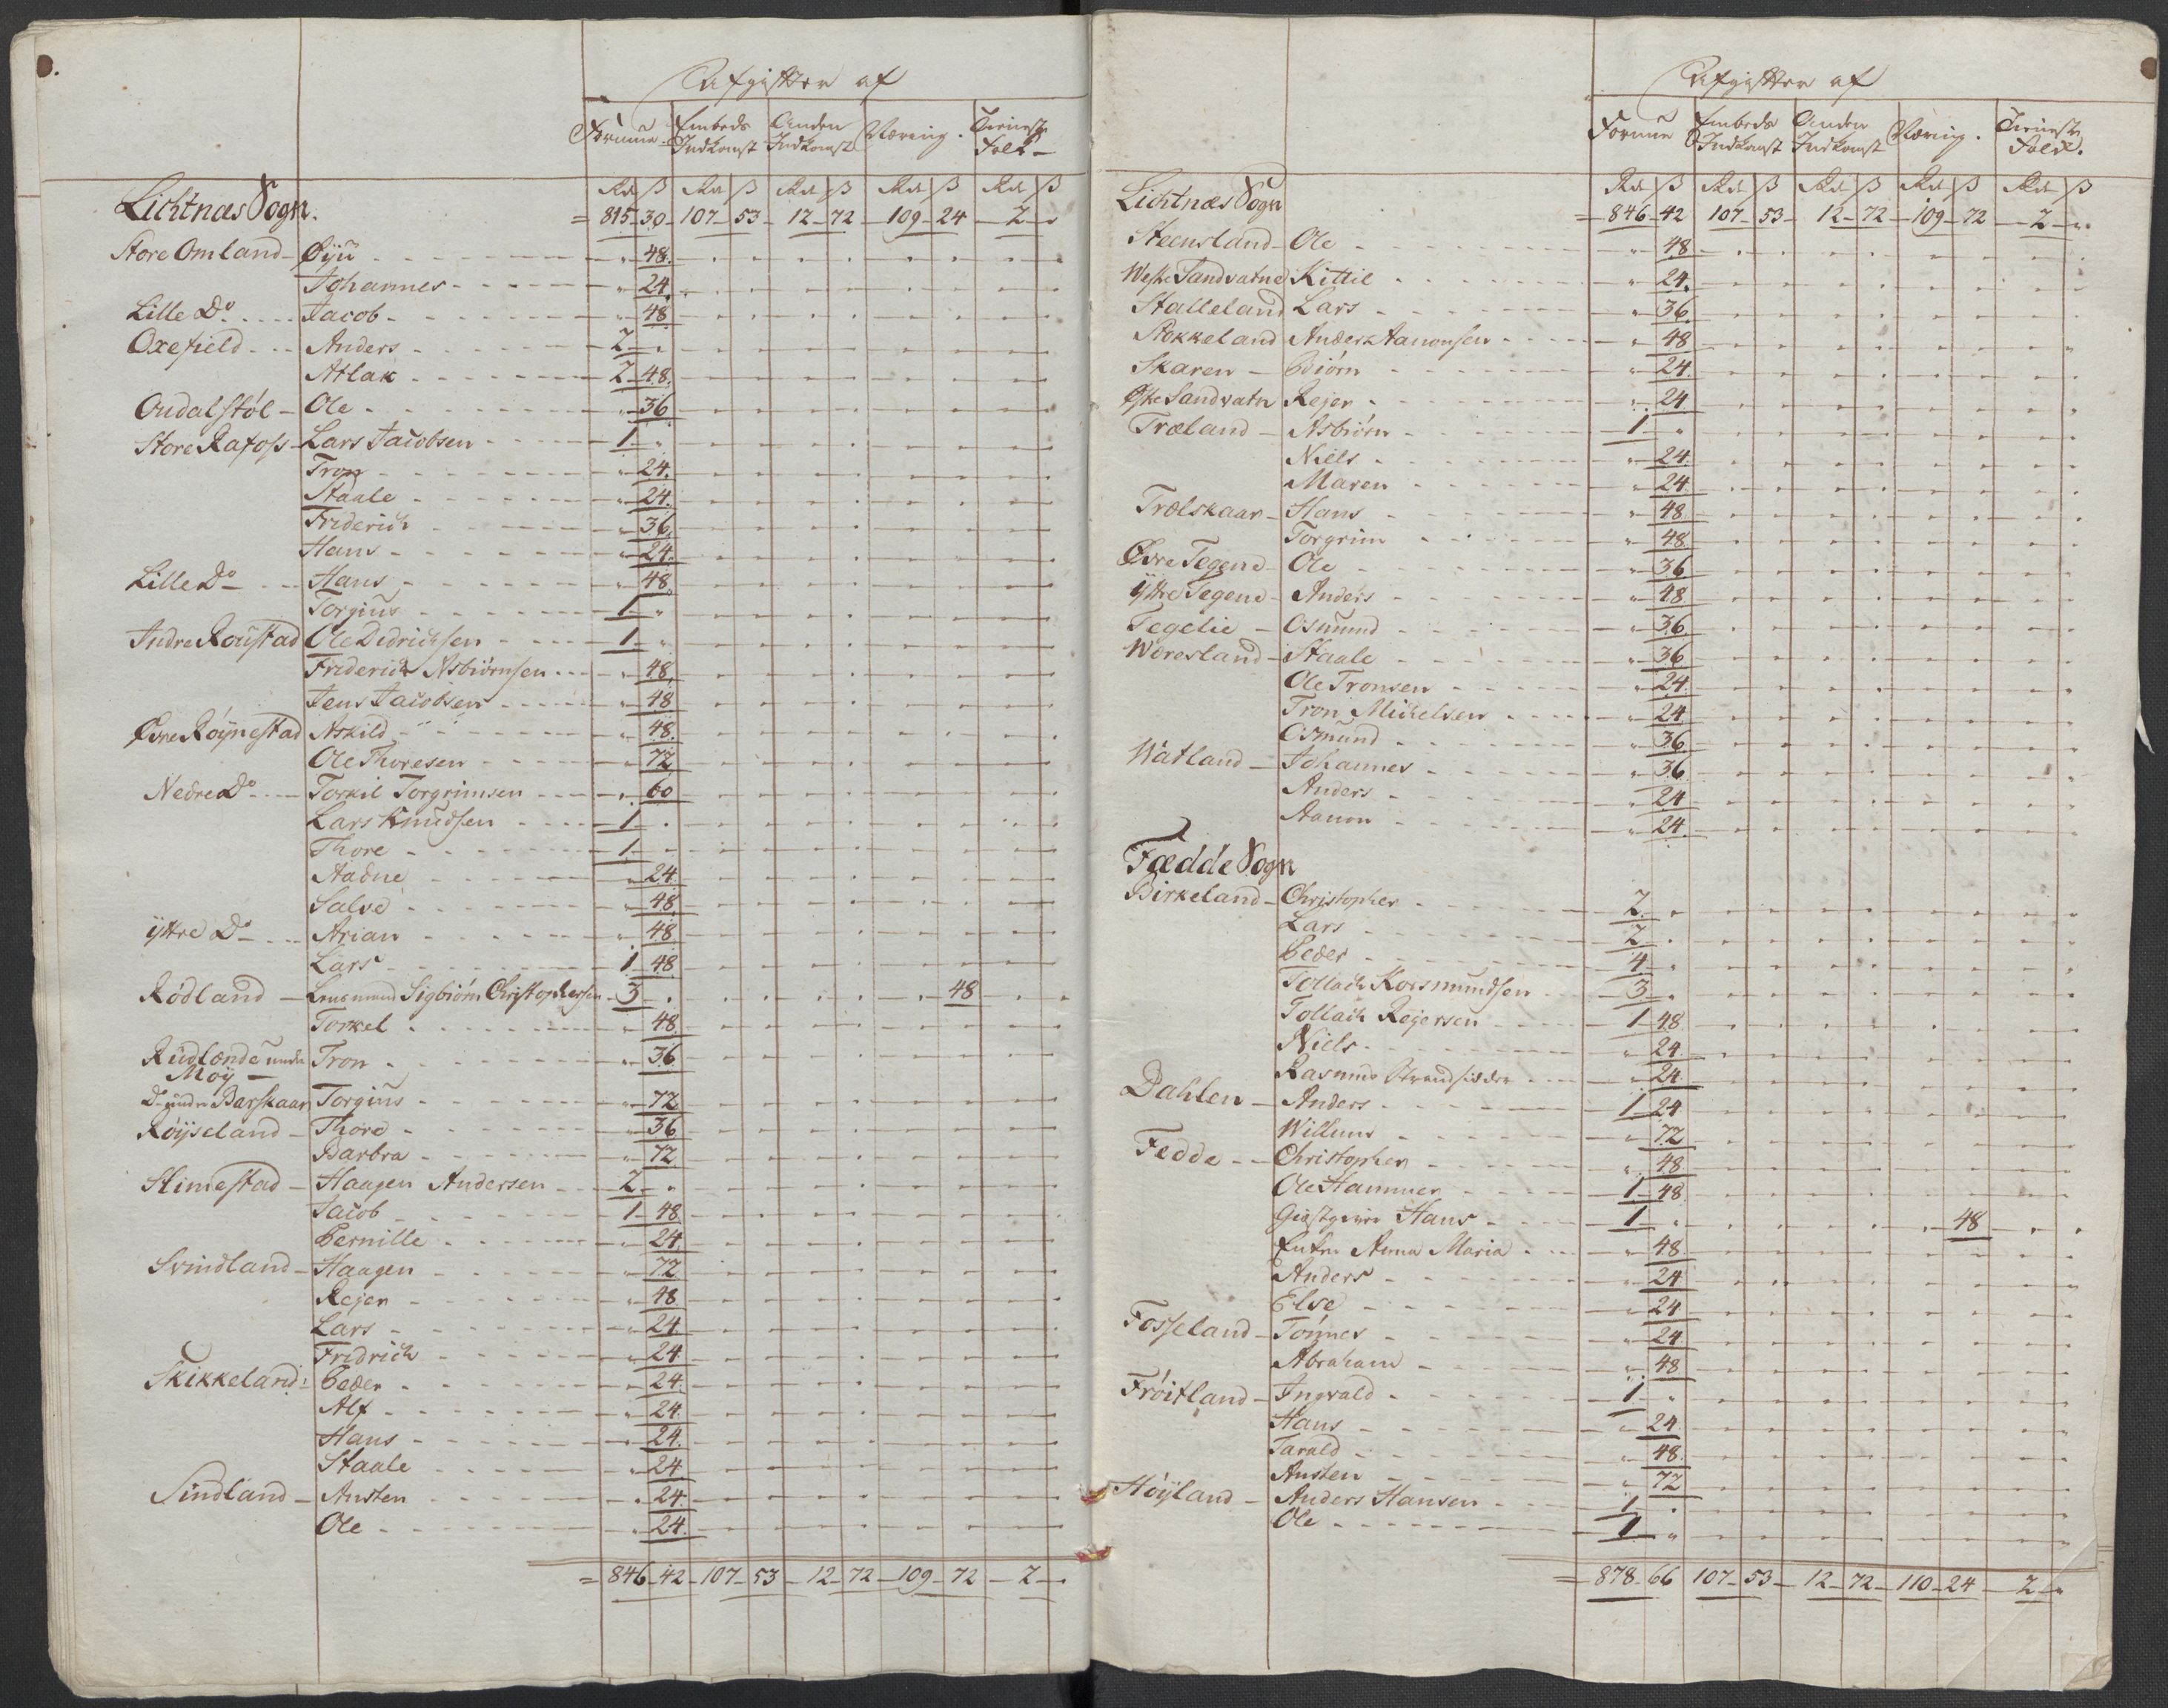 Afgifter af
Formue Embeds Indkomst Anden Indkomst Næring. Tieneste Folk
Rd ß Rd ß Rd ß Rd ß Rd ß
Lichtnæs Sogn. = 815-30-107-53-12-72-109-24-2-"
Store Omland - Øyü - " - 48.
Johannes - " - 24.
Lille Do - Jacob - " - 48
Oxefield - Anders - 2 - "
Atlak - 2 - 48.
Oudalstøl - Ole - " - 36
Store Rafoss - Lars Jacobsen - 1 - "
Tron - " - 24.
Staale - " - 24.
Friderich - " - 36.
Hans - " - 24.
Lille Do - Hans - " - 48.
Torgius - 1 - "
Indre Roustad Ole Didrichsen - 1 - "
Friderich Asbiørnsen - " - 48.
Jens Jacobsen - " - 48
Øvre Røynestad Askild - " - 48.
Ole Thoresen - " - 72
Nedre Do - Torkil Torgrimsen - " - 60
Lars Knudsen - 1 - "
Thore - 1 - "
Aadne - " - 24.
Salve - " - 48.
ÿttre Do - Arian - " - 48
Lars - 1 - 48
Rødland - Lensmand Sigbiørn Christophersen - 3 - " - 48
Torkel - " - 48.
Rüdlænde under Moÿ - Tron - " - 36
Do under Barskaar Torgius - " - 72
Røÿseland - Thore - " - 36
Barbra - " - 72
Stimestad - Haagen Andersen - 2 - "
Jacob - 1 - 48.
Pernille - " - 24.
Svindland - Haagen - " - 72
Rejer - " - 48
Lars - " - 24
Fridrich - " - 24
Skikkeland: Peder - " - 24.
Alf - " - 24.
Hans - " - 24.
Staale - " - 24
Sindland - Austen - " - 24.
Ole - " - 24.
= 846-42-107-53-12-72-109-72-2-"
Afgifter af
Formue Embeds Indkomst Anden Indkomst Næring. Tieneste Folk.
Rd ß Rd ß Rd ß Rd ß Rd ß
Lichtnæs Sogn = 846-42 107-53-12-72-109-72-2-"
Steensland - Ole - " - 48
Westre Sandvatne Kittil - " - 24.
Stalleland Lars - " - 36
Stokkeland Anders Aanonsen - " - 48
Skaren - Biørn - " - 24.
Østre Sandvatn Rejer - " - 24
Træland - Asbiørn - 1 - "
Niels - " - 24.
Maren - " - 24.
Trælskaar - Hans - " - 48.
Torgrim - " - 48.
Øvre Tegene - Ole - " - 36
ÿttre Tegene - Anders - " - 48
Tegelie - Osmund - " - 36.
Woresland - Staale - " - 36
Ole Tronsen - " - 24.
Tron Michelsen - " - 24
Osmund - " - 36
Watland - Johannes - " - 36.
Anders - " - 24
Aanon - " - 24.
Fædde Sogn
Birkeland - Christopher - 2 - "
Lars - 2 - "
Peder - 4 - "
Tollach Korsmundsen - 3 - "
Tollach Rejersen - 1 - 48
Niels - " - 24.
Rasmus Strandsidder - " - 24.
Dahlen - Anders - 1 - 24
Willums - " - 72
Fedde - Christopher - " - 48
Ole Hammer - 1 - 48
Giestgiver Hans - 1 - " - 48
Enken Anna Maria - " - 48
Anders - " - 24
Else - " - 24
Fosseland - Tønnes - " - 24
Abraham - " - 48
Frøitland - Ingvald - 1 - "
Hans - " - 24.
Tarald - " - 48.
Austen - " - 72
Høÿland - Anders Hansen - 1 - "
Ole - 1 - "
= 878-66 107-53-12-72-110-24-2-"